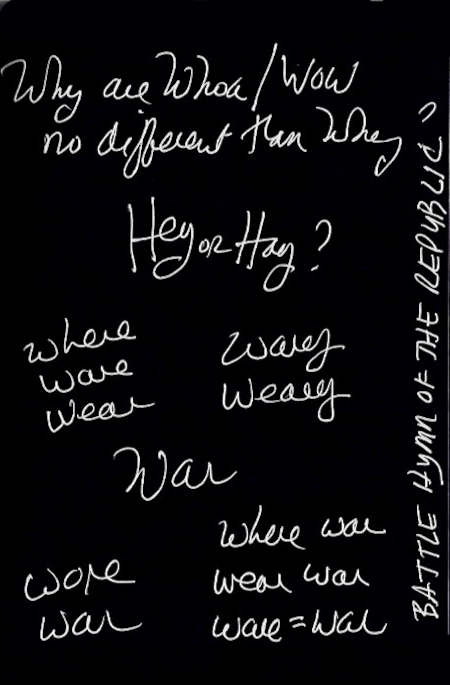 Why are Whoa/Wow
no different than Whey
Hey or Hay?
where
ware
wear
Wary
Weary
War
wore
war
Where war
wear war
ware = war
BATTLE HYMN OF THE REPUBLIC